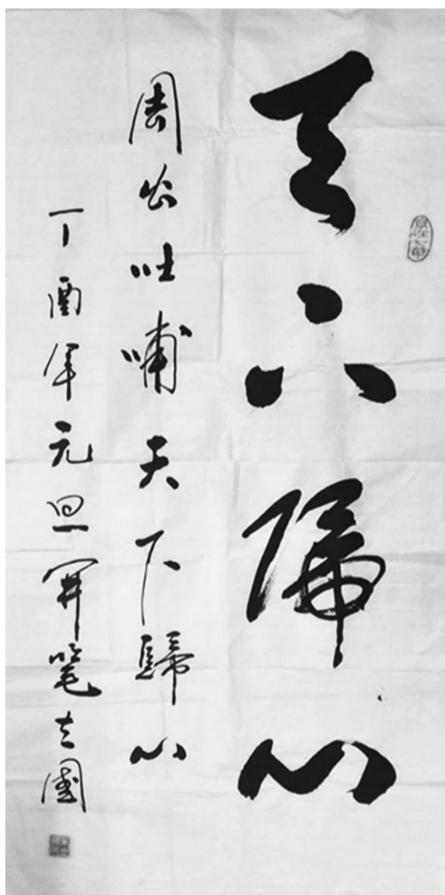 天下歸心
周公吐哺天下歸心
丁酉年元旦開笔國